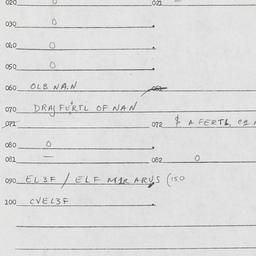 020 0 021
030 0
040 0
050 0
060 OLB NAN 061
070 DRAJ FÜRTL OF NAN
071 072 $ A FERTL
080 0
081 — 082 0
090 EL3F / ELF M1R ARUS (150
100 CVEL3F